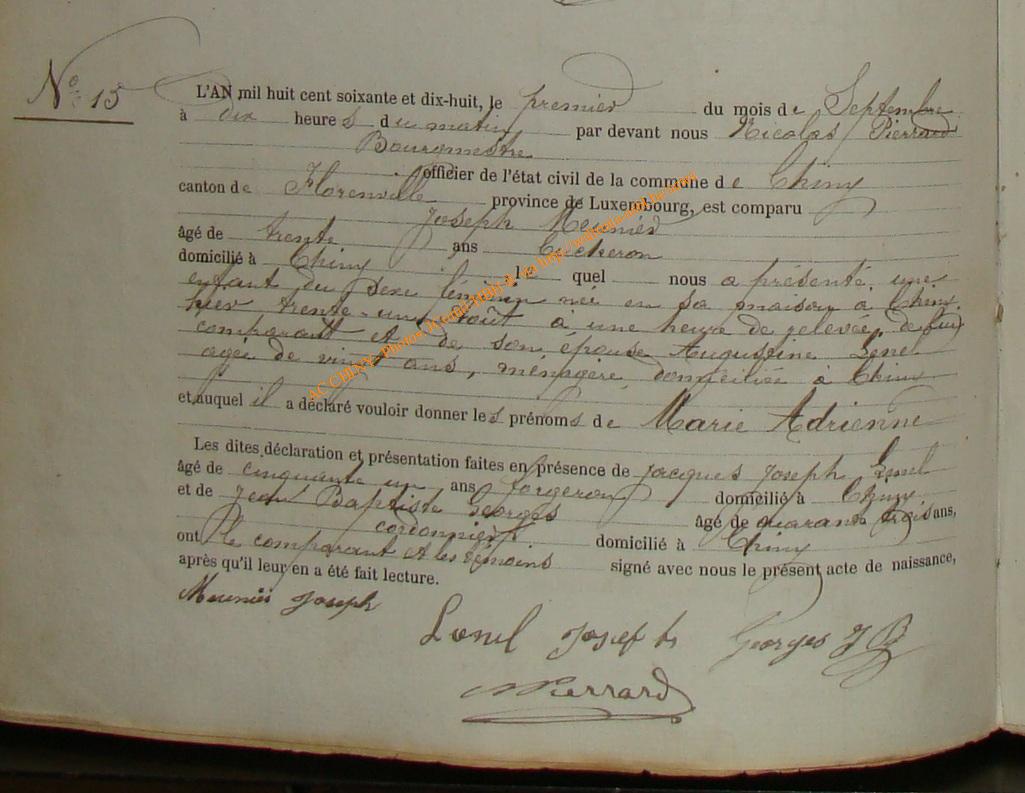 N° 15
L'AN mil huit cent soixante et dix-huit, le premier du mois de Septembre
à dix heures du matin par devant nous Nicolas Pierrard
Bourgmestre
officier de l'état civil de la commune de Chiny
canton de Florenville province de Luxembourg, est comparu
Joseph Meunier
âgé de trente ans
domicilié à Chiny lequel nous a présenté une
enfant du sexe féminin née en sa maison à Chiny
hier trente-un Août à une heure de relevée, de lui
comparant et de son épouse Augustine Lonel
agée de vingt ans, ménagère, domiciliée à Chiny
et auquel il a déclaré vouloir donner les prénoms de Marie Adrienne
Les dites déclaration et présentation faites en présence de Jacques Joseph Lonel
âgé de cinquante un ans forgeron domicilié à Chiny
et de Jean Baptiste Georges âgé de quarante trois ans,
cordonnier domicilié à Chiny
ont le comparant et les témoins signé avec nous le présent acte de naissance,
après qu'il leur en a été fait lecture.
Meunier Joseph
Lonel Josef Georges J B
NPierrard